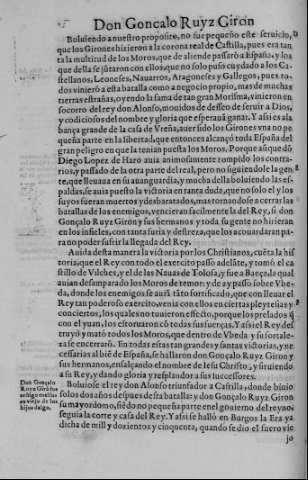 Don Gonçalo Ruyz Giron
Boluiendo a nuestro proposito, no fue pequeño este seruicio,
que los Girones hizieron a la corona real de Castilla, pues era tan
ta la multitud de los Moros, que de aliende passarõ a España, y los
que della se jũtaron con ellos, que no solo puso cuydado a los Ca-
stellanos, Leoneses, Nauarros, Aragoneses y Gallegos, pues to-
dos vinierõ a esta batalla como a negocio propio, mas de muchas
tierras estrañas, oyendo la fama de tan gran Morisma, vinieron en
socorro del rey don Alonso, mouidos de desseo de seruir a Dios,
y codiciosos del nombre y gloria que esperauã ganar. Y assi es ala
bança grande de la casa de Vreña, auer sido los Girones vna no pe
queña parte en la libertad, que entonces alcançò toda España del
gran peligro en que la tenian puesta los Moros. Porque aũque dõ
Diego Lopez de Haro auia animosamente rompido los contra-
rios, y passado de la otra parte del real, pero no siguiendole la gen
te, que lleuaua en su auanguardia, y mucha della boluiendo las es-
paldas, se auia puesto la victoria en tanta duda, que no solo el y los
suyos fueran muertos y desbaratados, mas tornandose a cerrar las
batallas de los enemigos, vencieran facilmente la del Rey, si don
Gonçalo Ruyz Giron y sus hermanos y toda su gente no hirieran
en los infieles, con tanta furia y destreza, que los acouardaran pa-
ra no poder sufrir la llegada del Rey.
Auida desta manera la victoria por los Christianos, cuẽta la his
toria, que el Rey con todo el exercito passò adelãte, y tomò el ca
stillo de Vilches, y el de las Nauas de Tolosa, y fue a Baeça, la qual
auian desamparado los Moros de temor: y de ay passò sobre Vbe-
da, donde los enemigos se auiã
Rey tan poderoso exercito, venia con ellos en ciertas pleytesias y
conciertos, los quales no tuuieron effecto, porque los prelados q̃
con el yuan, los estoruaron cõ todas sus fuerças. Y assi el Rey des
truyò y matò todos los Moros, que dentro de Vbeda y su fortale-
za se encerrarõ. En todas estas tan grandes y santas victorias, y ne
cessarias al biẽ de España, se hallaron don Gonçalo Ruyz Giron y
sus hermanos, ensalçando el nombre de Iesu Christo, y siruiendo
a su Rey, y dando gloria y resplandor a sus successores.
Don Gonçalo
Ruyz Girõ fue
Boluiose el rey don Alonso triunfador a Castilla, donde biuio
solos dos años despues desta batalla: y don Gonçalo Ruyz Giron
su mayordomo, siẽdo no pequeña parte en el gouierno del reyno,
seguia la corte y casa del Rey. Y assi se hallò en Burgos la Era ya
dicha de mill y dozientos y cinquenta, quando se dio el fuero vie
jo